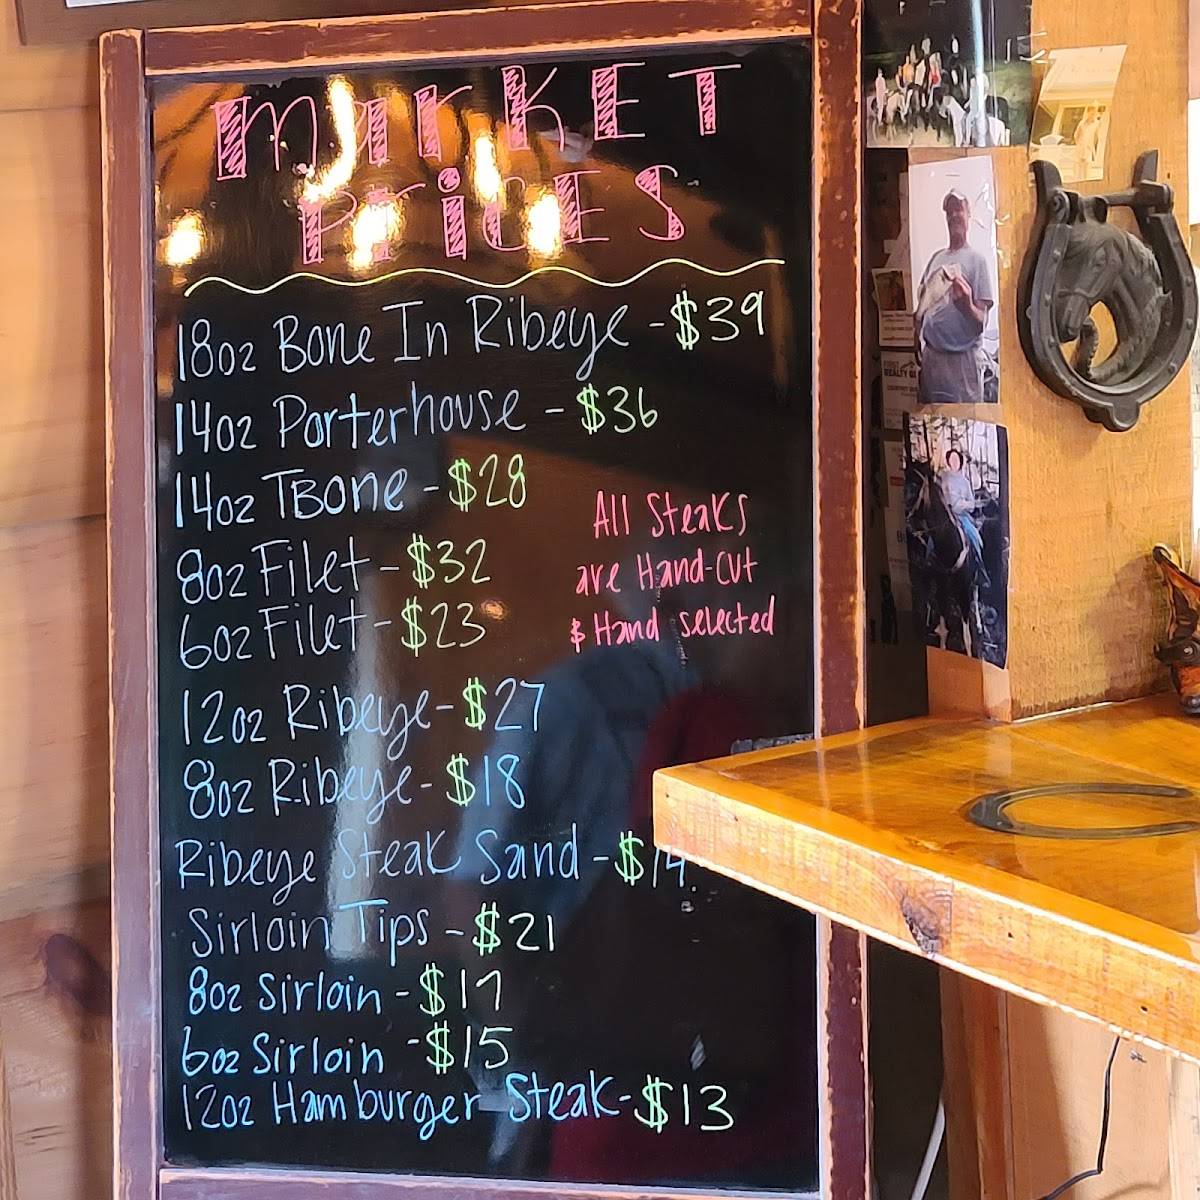 Market
Prices
18oz Bone In Ribeye - $39
14oz Porterhouse - $36
14oz TBone - $28
8oz Filet - $32
6oz Filet - $23
All Steaks
are Hand-cut
& Hand selected
12oz Ribeye - $27
8oz Ribeye - $18
Ribeye Steak Sand - $14
Sirloin Tips - $21
8oz Sirloin - $17
6oz Sirloin - $15
12oz Hamburger Steak - $13